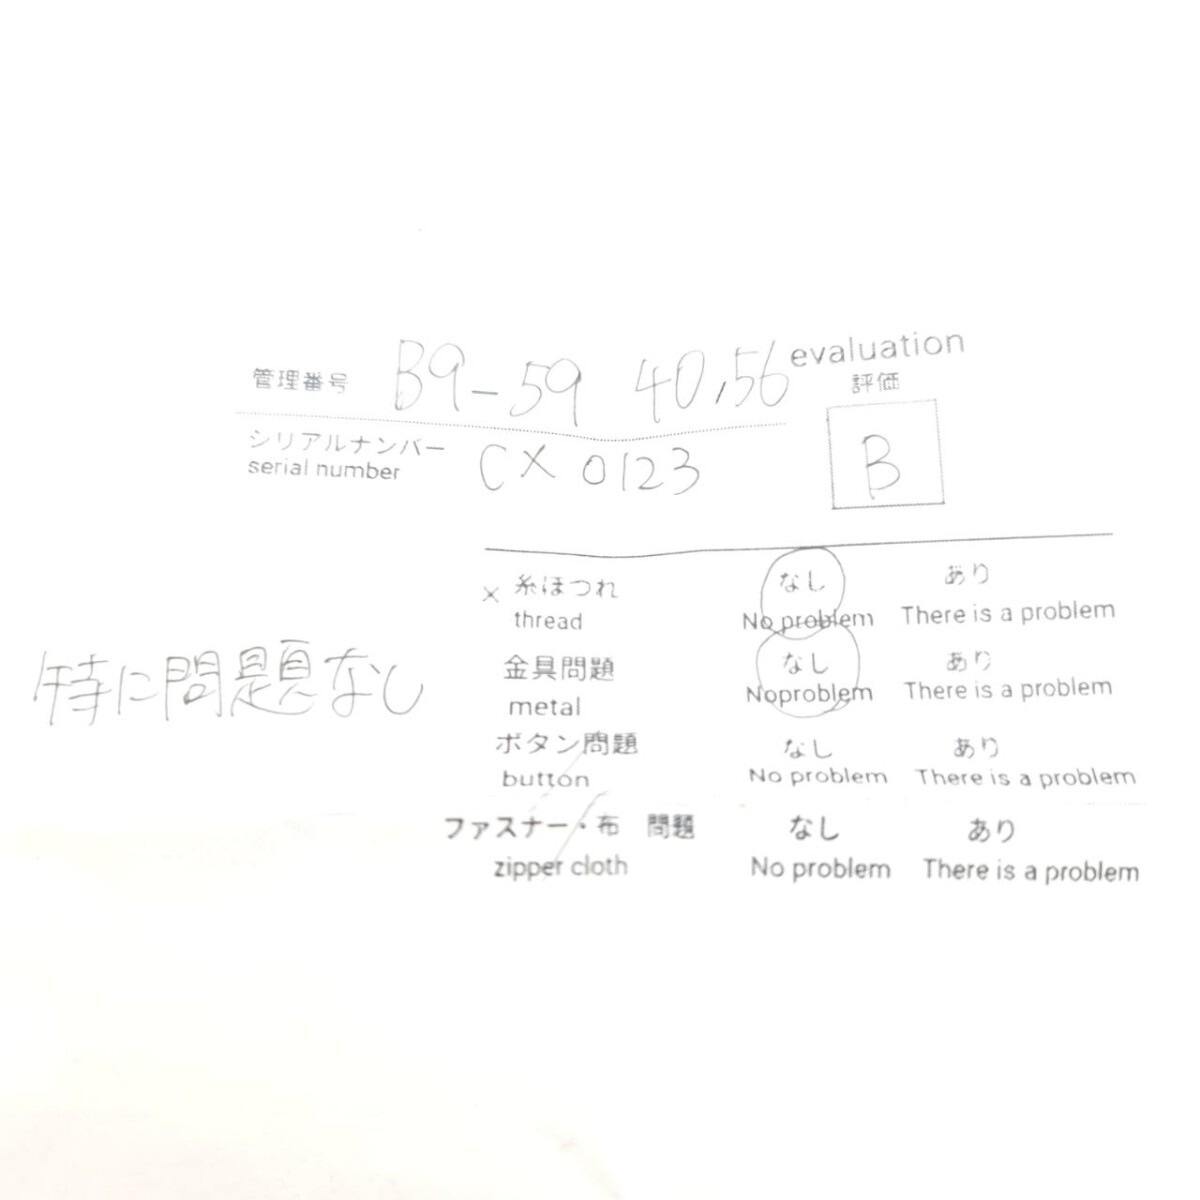 管理番号 B9-59 40,56 evaluation
評価
シリアルナンバー
serial number CX 0123 B
× 糸ほつれ なし あり
thread No problem There is a problem
特に問題なし
金具問題 なし あり
metal Noproblem There is a problem
ボタン問題 なし あり
button No problem There is a problem
ファスナー・布 問題 なし あり
zipper cloth No problem There is a problem